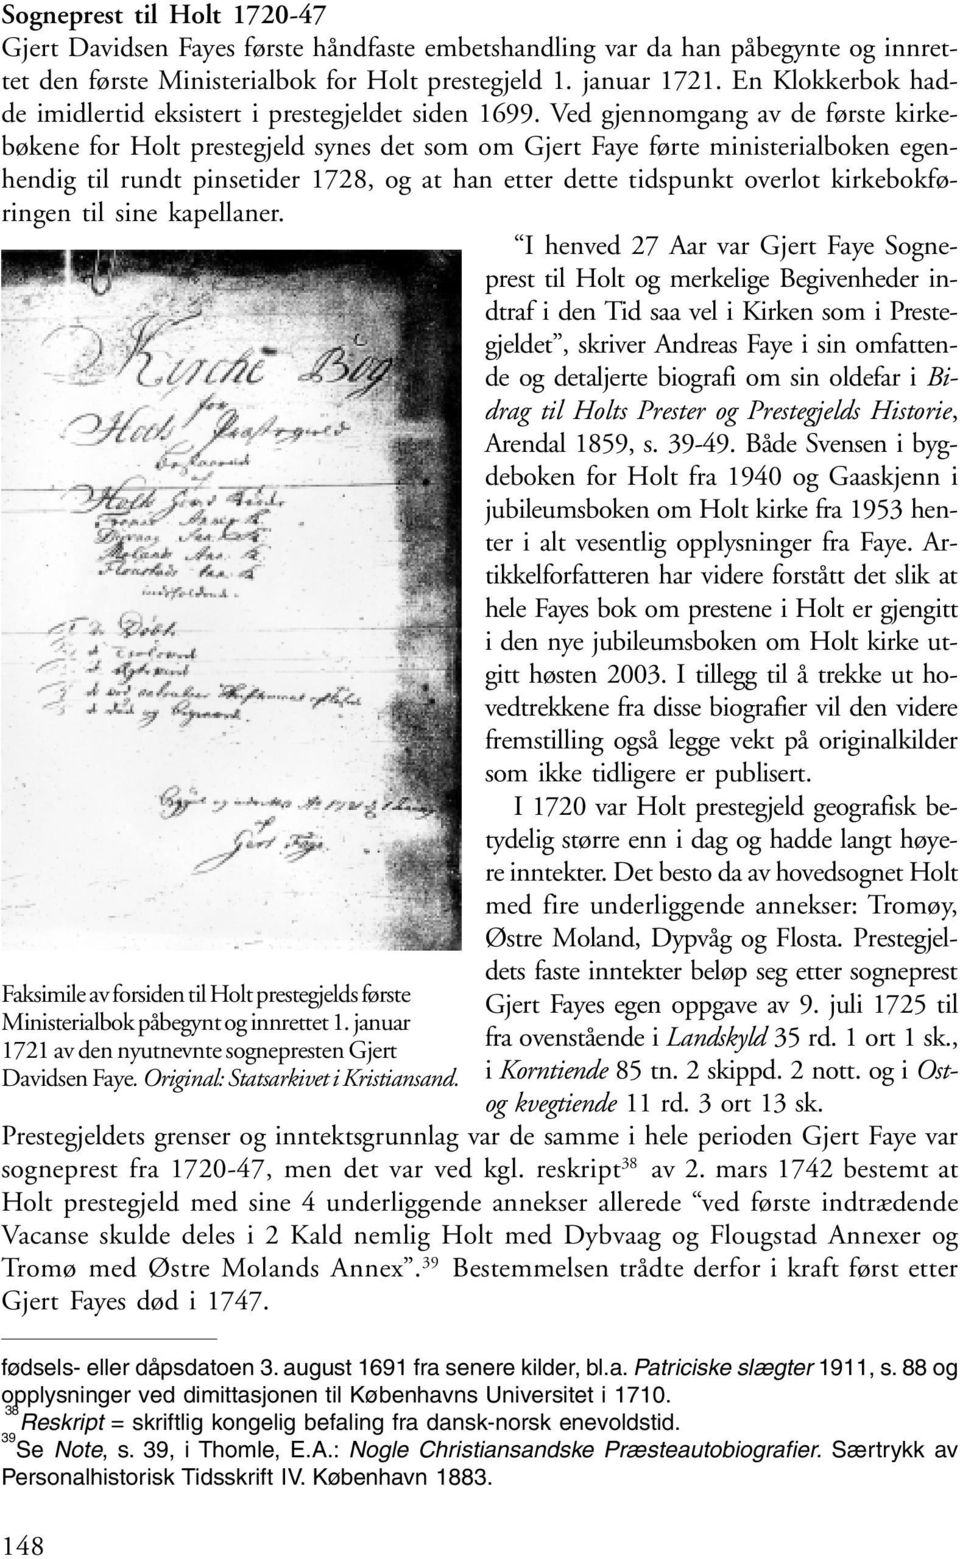 Sogneprest til Holt 1720-47
Gjert Davidsen Fayes første håndfaste embetshandling var da han påbegynte og innret-
tet den første Ministerialbok for Holt prestegjeld 1. januar 1721. En Klokkerbok had-
de imidlertid eksistert i prestegjeldet siden 1699. Ved gjennomgang av de første kirke-
bøkene for Holt prestegjeld synes det som om Gjert Faye førte ministerialboken egen-
hendig til rundt pinsetider 1728, og at han etter dette tidspunkt overlot kirkebokfø-
ringen til sine kapellaner.
Kirche Bog
for
Holts Præstegield
bestaaende
Gert Faye
Faksimile av forsiden til Holt prestegjelds første
Ministerialbok påbegynt og innrettet 1. januar
1721 av den nyutnevnte sognepresten Gjert
Davidsen Faye. Original: Statsarkivet i Kristiansand.
“I henved 27 Aar var Gjert Faye Sogne-
prest til Holt og merkelige Begivenheder in-
dtraf i den Tid saa vel i Kirken som i Preste-
gjeldet”, skriver Andreas Faye i sin omfatten-
de og detaljerte biografi om sin oldefar i Bi-
drag til Holts Prester og Prestegjelds Historie,
Arendal 1859, s. 39-49. Både Svensen i byg-
deboken for Holt fra 1940 og Gaaskjenn i
jubileumsboken om Holt kirke fra 1953 hen-
ter i alt vesentlig opplysninger fra Faye. Ar-
tikkelforfatteren har videre forstått det slik at
hele Fayes bok om prestene i Holt er gjengitt
i den nye jubileumsboken om Holt kirke ut-
gitt høsten 2003. I tillegg til å trekke ut ho-
vedtrekkene fra disse biografier vil den videre
fremstilling også legge vekt på originalkilder
som ikke tidligere er publisert.
I 1720 var Holt prestegjeld geografisk be-
tydelig større enn i dag og hadde langt høye-
re inntekter. Det besto da av hovedsognet Holt
med fire underliggende annekser: Tromøy,
Østre Moland, Dypvåg og Flosta. Prestegjel-
dets faste inntekter beløp seg etter sogneprest
Gjert Fayes egen oppgave av 9. juli 1725 til
fra ovenstående i Landskyld 35 rd. 1 ort 1 sk.,
i Korntiende 85 tn. 2 skippd. 2 nott. og i Ost-
og kvegtiende 11 rd. 3 ort 13 sk.
Prestegjeldets grenser og inntektsgrunnlag var de samme i hele perioden Gjert Faye var
sogneprest fra 1720-47, men det var ved kgl. reskript38 av 2. mars 1742 bestemt at
Holt prestegjeld med sine 4 underliggende annekser allerede “ved første indtrædende
Vacanse skulde deles i 2 Kald nemlig Holt med Dybvaag og Flougstad Annexer og
Tromø med Østre Molands Annex”.39 Bestemmelsen trådte derfor i kraft først etter
Gjert Fayes død i 1747.
fødsels- eller dåpsdatoen 3. august 1691 fra senere kilder, bl.a. Patriciske slægter 1911, s. 88 og
opplysninger ved dimittasjonen til Københavns Universitet i 1710.
38 Reskript = skriftlig kongelig befaling fra dansk-norsk enevoldstid.
39 Se Note, s. 39, i Thomle, E.A.: Nogle Christiansandske Præsteautobiografier. Særtrykk av
Personalhistorisk Tidsskrift IV. København 1883.
148